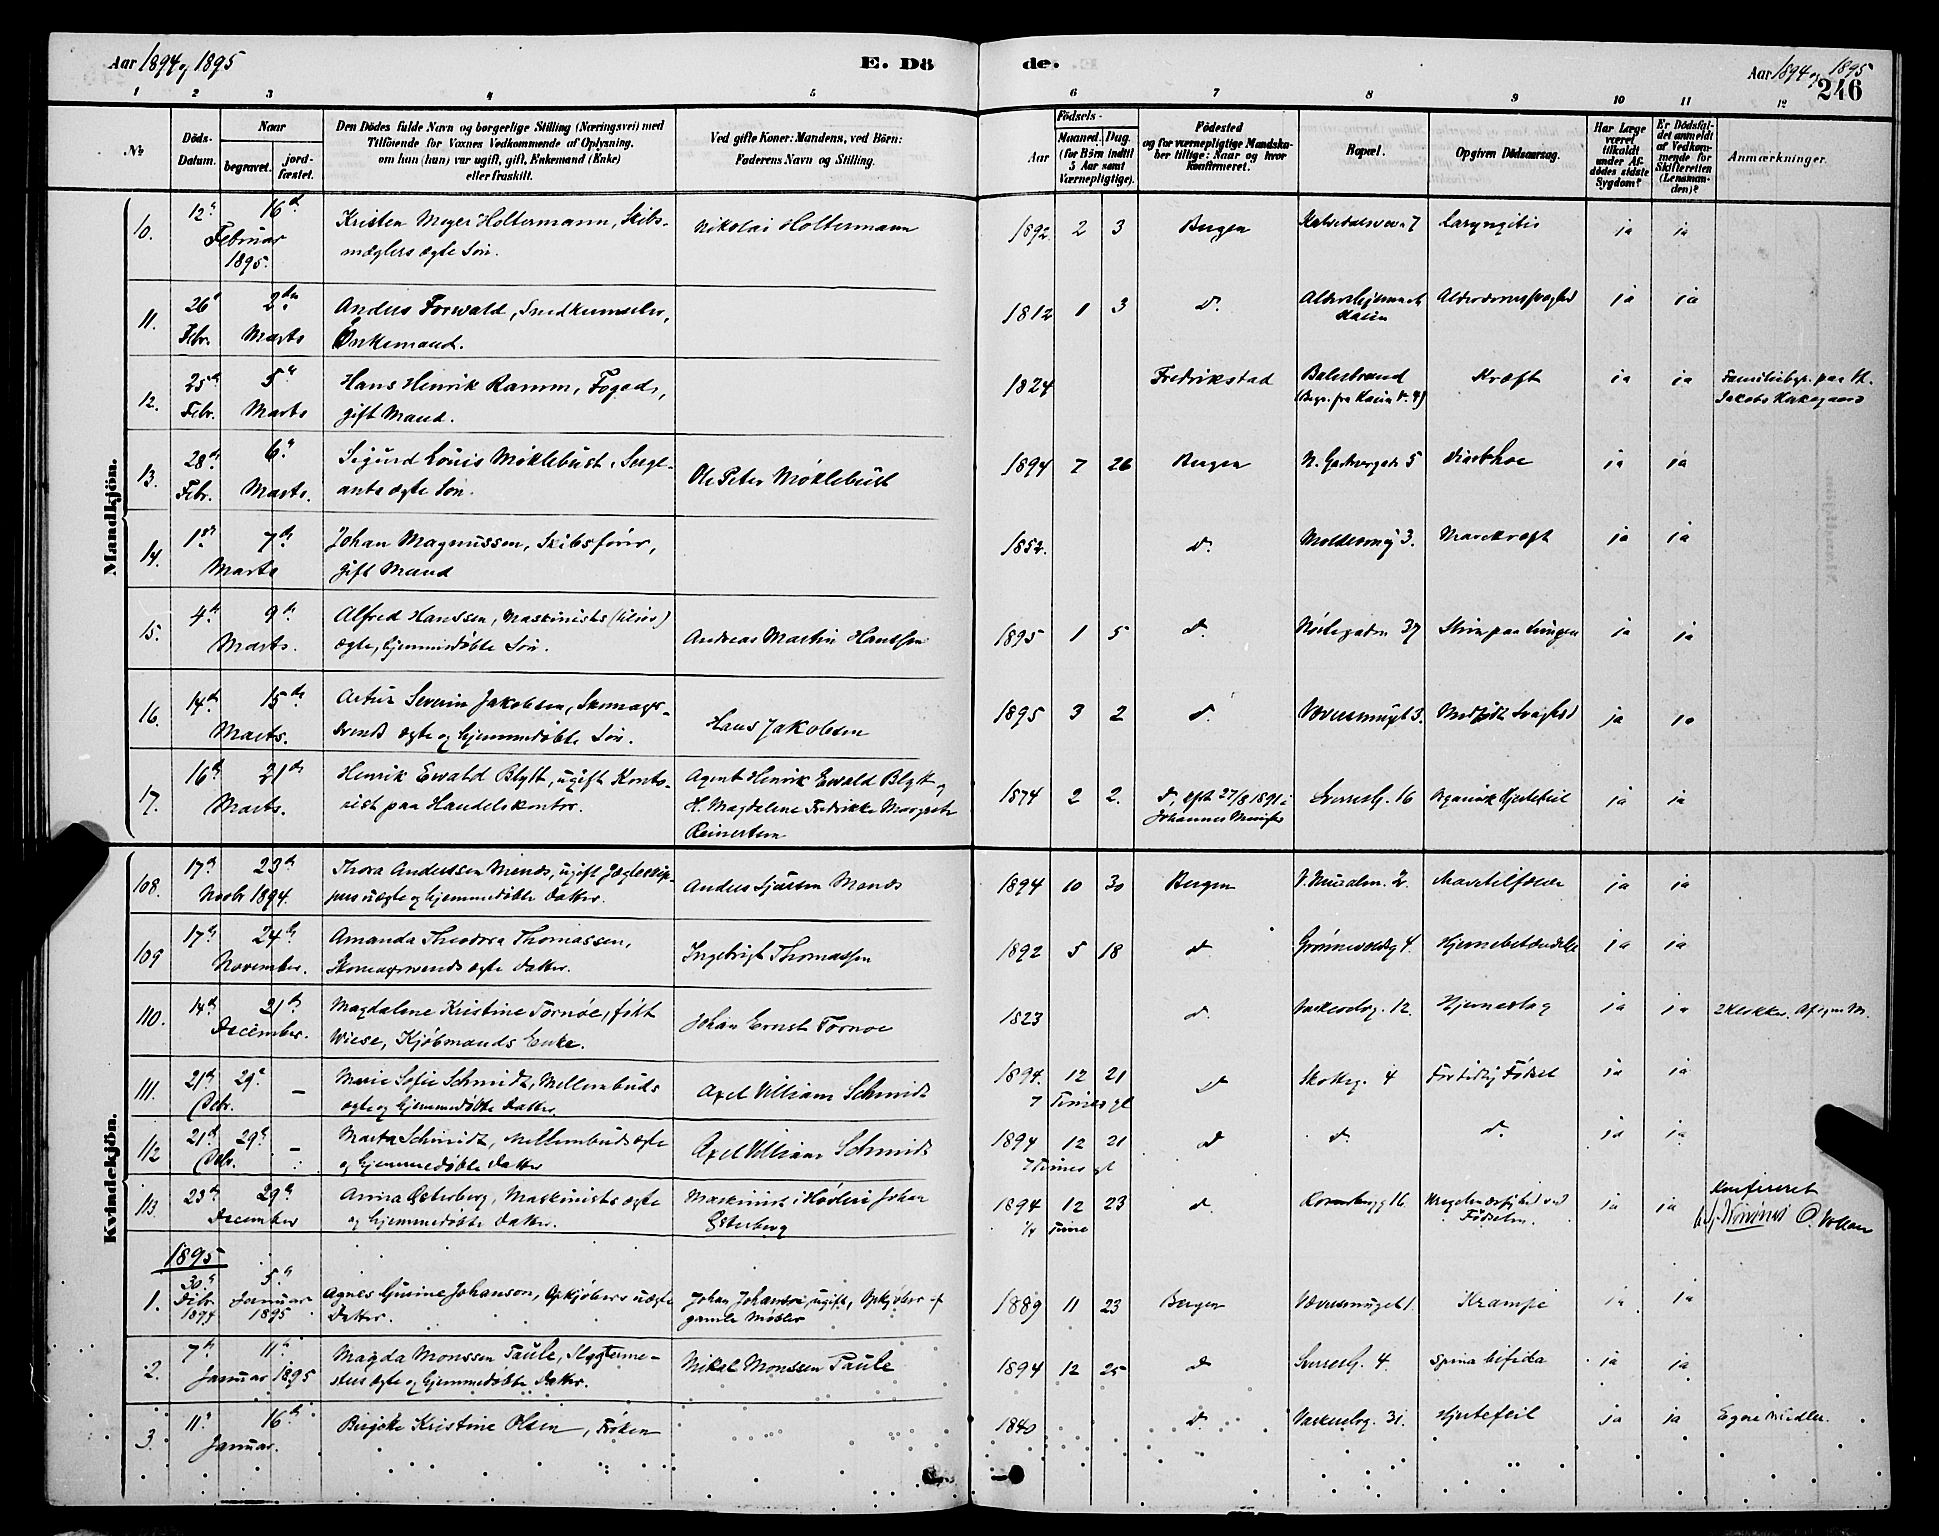 Aar 1894 og 1895
E. Dö
de.
Aar 1894 og 1895
246
1 2 3 4 5 6 7 8 9 10 11 12
No
Döds-Datum.
Naar
begravet.
jord-fæstet.
Den Dödes fulde Navn og borgerlige Stilling (Næringsvei) med
Tilföiende for Voxnes Vedkommende af Oplysning,
om hun (han) var ugift, gift, Enkemand (Enke)
eller fraskilt.
Ved gifte Koner: Mandens, ved Börn:
Faderens Navn og Stilling.
Födsels-
Aar
Maaned. Dag.
(for Börn indtil
5 Aar samt
Værnepligtige).
Födested
og for værnepligtige Mandska-
ber tillige: Naar og hvor
konfirmeret.
Bopæl.
Opgiven Dödsaarsag.
Har Læge
været
tilkaldt
under Af-
dödes sidste
Sygdom?
Er Dödsfal-
det anmeldt
af Vedkom-
mende for
Skifteretten
(Lensman-
den)?
Anmærkninger.
Mandkjön.
10. 12 16d Februar 1895. Kristen Meyer Holtermann, Skibs-
mæglers ægte Søn. Nikolai Holtermann 1892 2 3 Bergen 7 Laryngitis ja ja
11. 26 Febr. 2den Marts Anders Forwald, Snedkermester,
Enkemand. 1812 1 3 d. Alderdomssvaghed ja ja
12. 25 Febr. 5 Marts Hans Henrik Ramm, Foged,
gift Mand. 1824 Fredrikstad Balestrand Kræft ja ja
13. 28 Febr. 6 Marts. Sigurd Louis Møklebust, Serge-
ants ægte Søn. Ole Peter Møklebust 1894 7 26 Bergen 5 Diarrhoe ja ja
14. 1 7de Marts Johan Magnussen, Skibsfører,
gift Mand 1852. d. 3. Mavekræft ja ja
15. 4 9de Marts. Alfred Hanssen, Maskinists
ægte, hjemmedøbte Søn. Andreas Martin Hanssen 1895 1 5 d. Nøstegaden 37 Slim paa Lungen ja ja
16. 14 15de Marts. Artur Severin Jakobsen, Skomager-
svends ægte og hjemmedøbte Søn. Hans Jakobsen 1895 3 2 d. Væversmuget 3. Medfødt Svaghed ja ja
17. 16 21de Marts. Henrik Ewald Blytt, ugift Kontorist
paa Handelskontor. Agent Henrik Ewald Blytt og
H. Magdalene Fredrikke Margrete
Reinertsen 1874 2 2. d. 27/8 1891 i
Johannes Sverresg. 16 Organisk Hjertefeil ja ja
Kvindekjön.
108. 17 23 Novbr 1894. Thora Anderssen Mends, ugift
uægte og hjemmedøbte Datter. Anders Mends 1894 10 30 Bergen 2. ja ja
109 17 24 November. Amanda Theodora Thomassen,
Skomagersvends ægte Datter. Ingebrigt Thomassen 1892 5 18 d. 4. Hjernebetændelse ja ja
110. 14 21 December. Magdalene Kristine Tornøe, født
Wiese, Kjøbmands Enke. Johan Ernst Tornøe 1823 d. 12. Hjerneslag ja ja 2 Klokker.
111. 21 29 Debr. — Marie Sofie Schmidt, Mellembuds
ægte og hjemmedøbte Datter. Axel William Schmidt 1894. 12 21
7 Timer gl d Skotteg. 4 Fortidlig Fødsel ja ja
112 21 29 Debr. — Marta Schmidt, Mellembuds ægte
og hjemmedøbte Datter Axel William Schmidt 1894 12 21
7 Timer gl d d. d. ja ja
113. 23 29 December Anna Østerberg, Maskinists ægte
og hjemmedøbte Datter. Maskinist Johan
Østerberg 1894 12 23
1/4 Time d. Rosenbergg 16 ved
Fødselen ja ja Konfereret
1895
1. 30 Debr. 1894 5 Januar 1895 Agnes Gurine Johanson, Opkjøbers uægte
Datter. Johan Johansen, ugift, Opkjøber af
gamle Møbler 1889 11 23 Bergen Væversmuget 1. Krampe ja ja
2. 7 11 Januar 1895 Magda Monssen Taule, Slagterme-
sters ægte og hjemmedøbte Datter. Mikal Monssen Taule 1894 12 25 d Sverresg. 4. Spina bifida ja ja
3. 11 16 Januar. Birgitte Kristine Olsen, Frøken 1840 d 31. Hjertefeil ja ja Egne Midler.